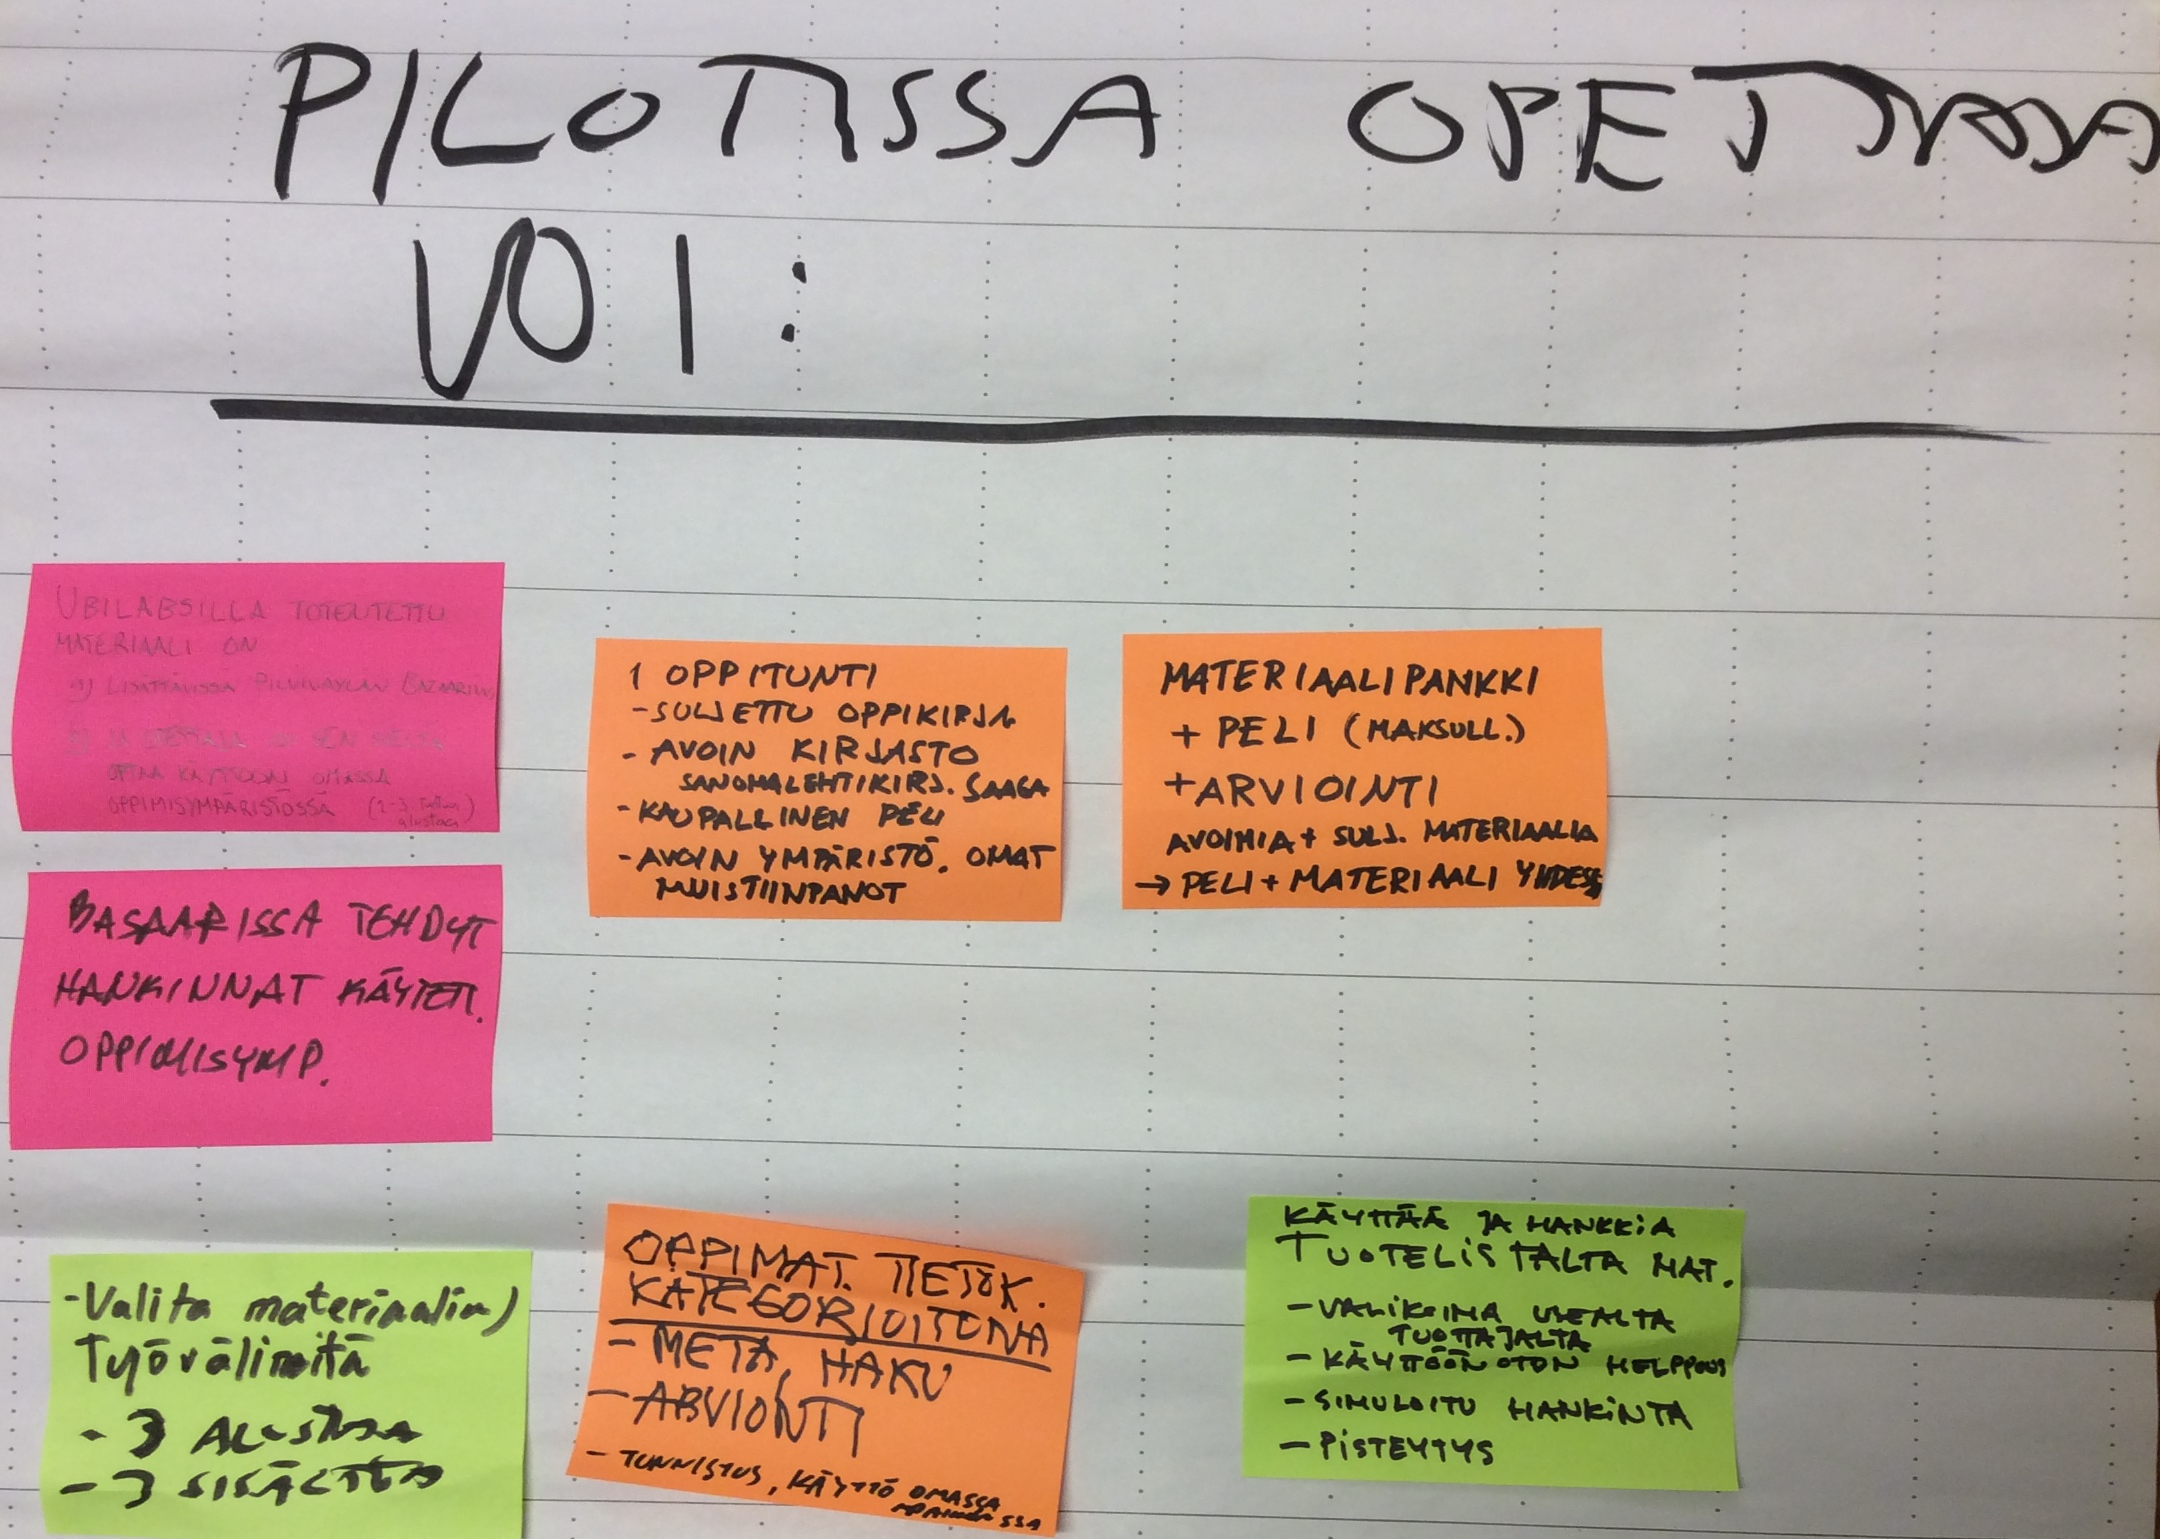 PILOTISSA OPETTAJA
VOI:
UBILABSILLA TOTEUTETTU
MATERIAALI ON
a) LISÄTTÄVISSÄ PILVIVÄYLÄN BAZAARIIN
b) JA OPETTAJA SEN
OTTAA KÄYTTÖÖN OMASSA
OPPIMISYMPÄRISTÖSSÄ (1-3
alustaa)
BASAARISSA TEHDYT
HANKINNAT KÄYTETT.
OPPIMISYMP.
1 OPPITUNTI
-SULJETTU OPPIKIRJA
- AVOIN KIRJASTO
SANOMALEHTIKIRJ. SAAGA
- KAUPALLINEN PELI
- AVOIN YMPÄRISTÖ. OMAT
MUISTIINPANOT
MATERIAALIPANKKI
+ PELI (MAKSULL.)
+ ARVIOINTI
AVOIMIA + SULJ. MATERIAALIA
→ PELI + MATERIAALI YHDESSÄ
-Valita materiaalia)
Työvälineitä
- 3 ALUSTAA
- 3 SISÄLTÖÄ
OPPIMAT. TIETOK.
KATEGORIOITUNA
- META, HAKU
- ARVIONTI
- TUNNISTUS, KÄYTTÖ OMASSA
KÄYTTÄÄ JA HANKKIA
TUOTELISTALTA MAT.
- VALIKOIMA USEALTA
TUOTTAJALTA
- KÄYTTÖÖNOTON HELPPOUS
- SIMULOITU HANKINTA
- PISTEYTYS